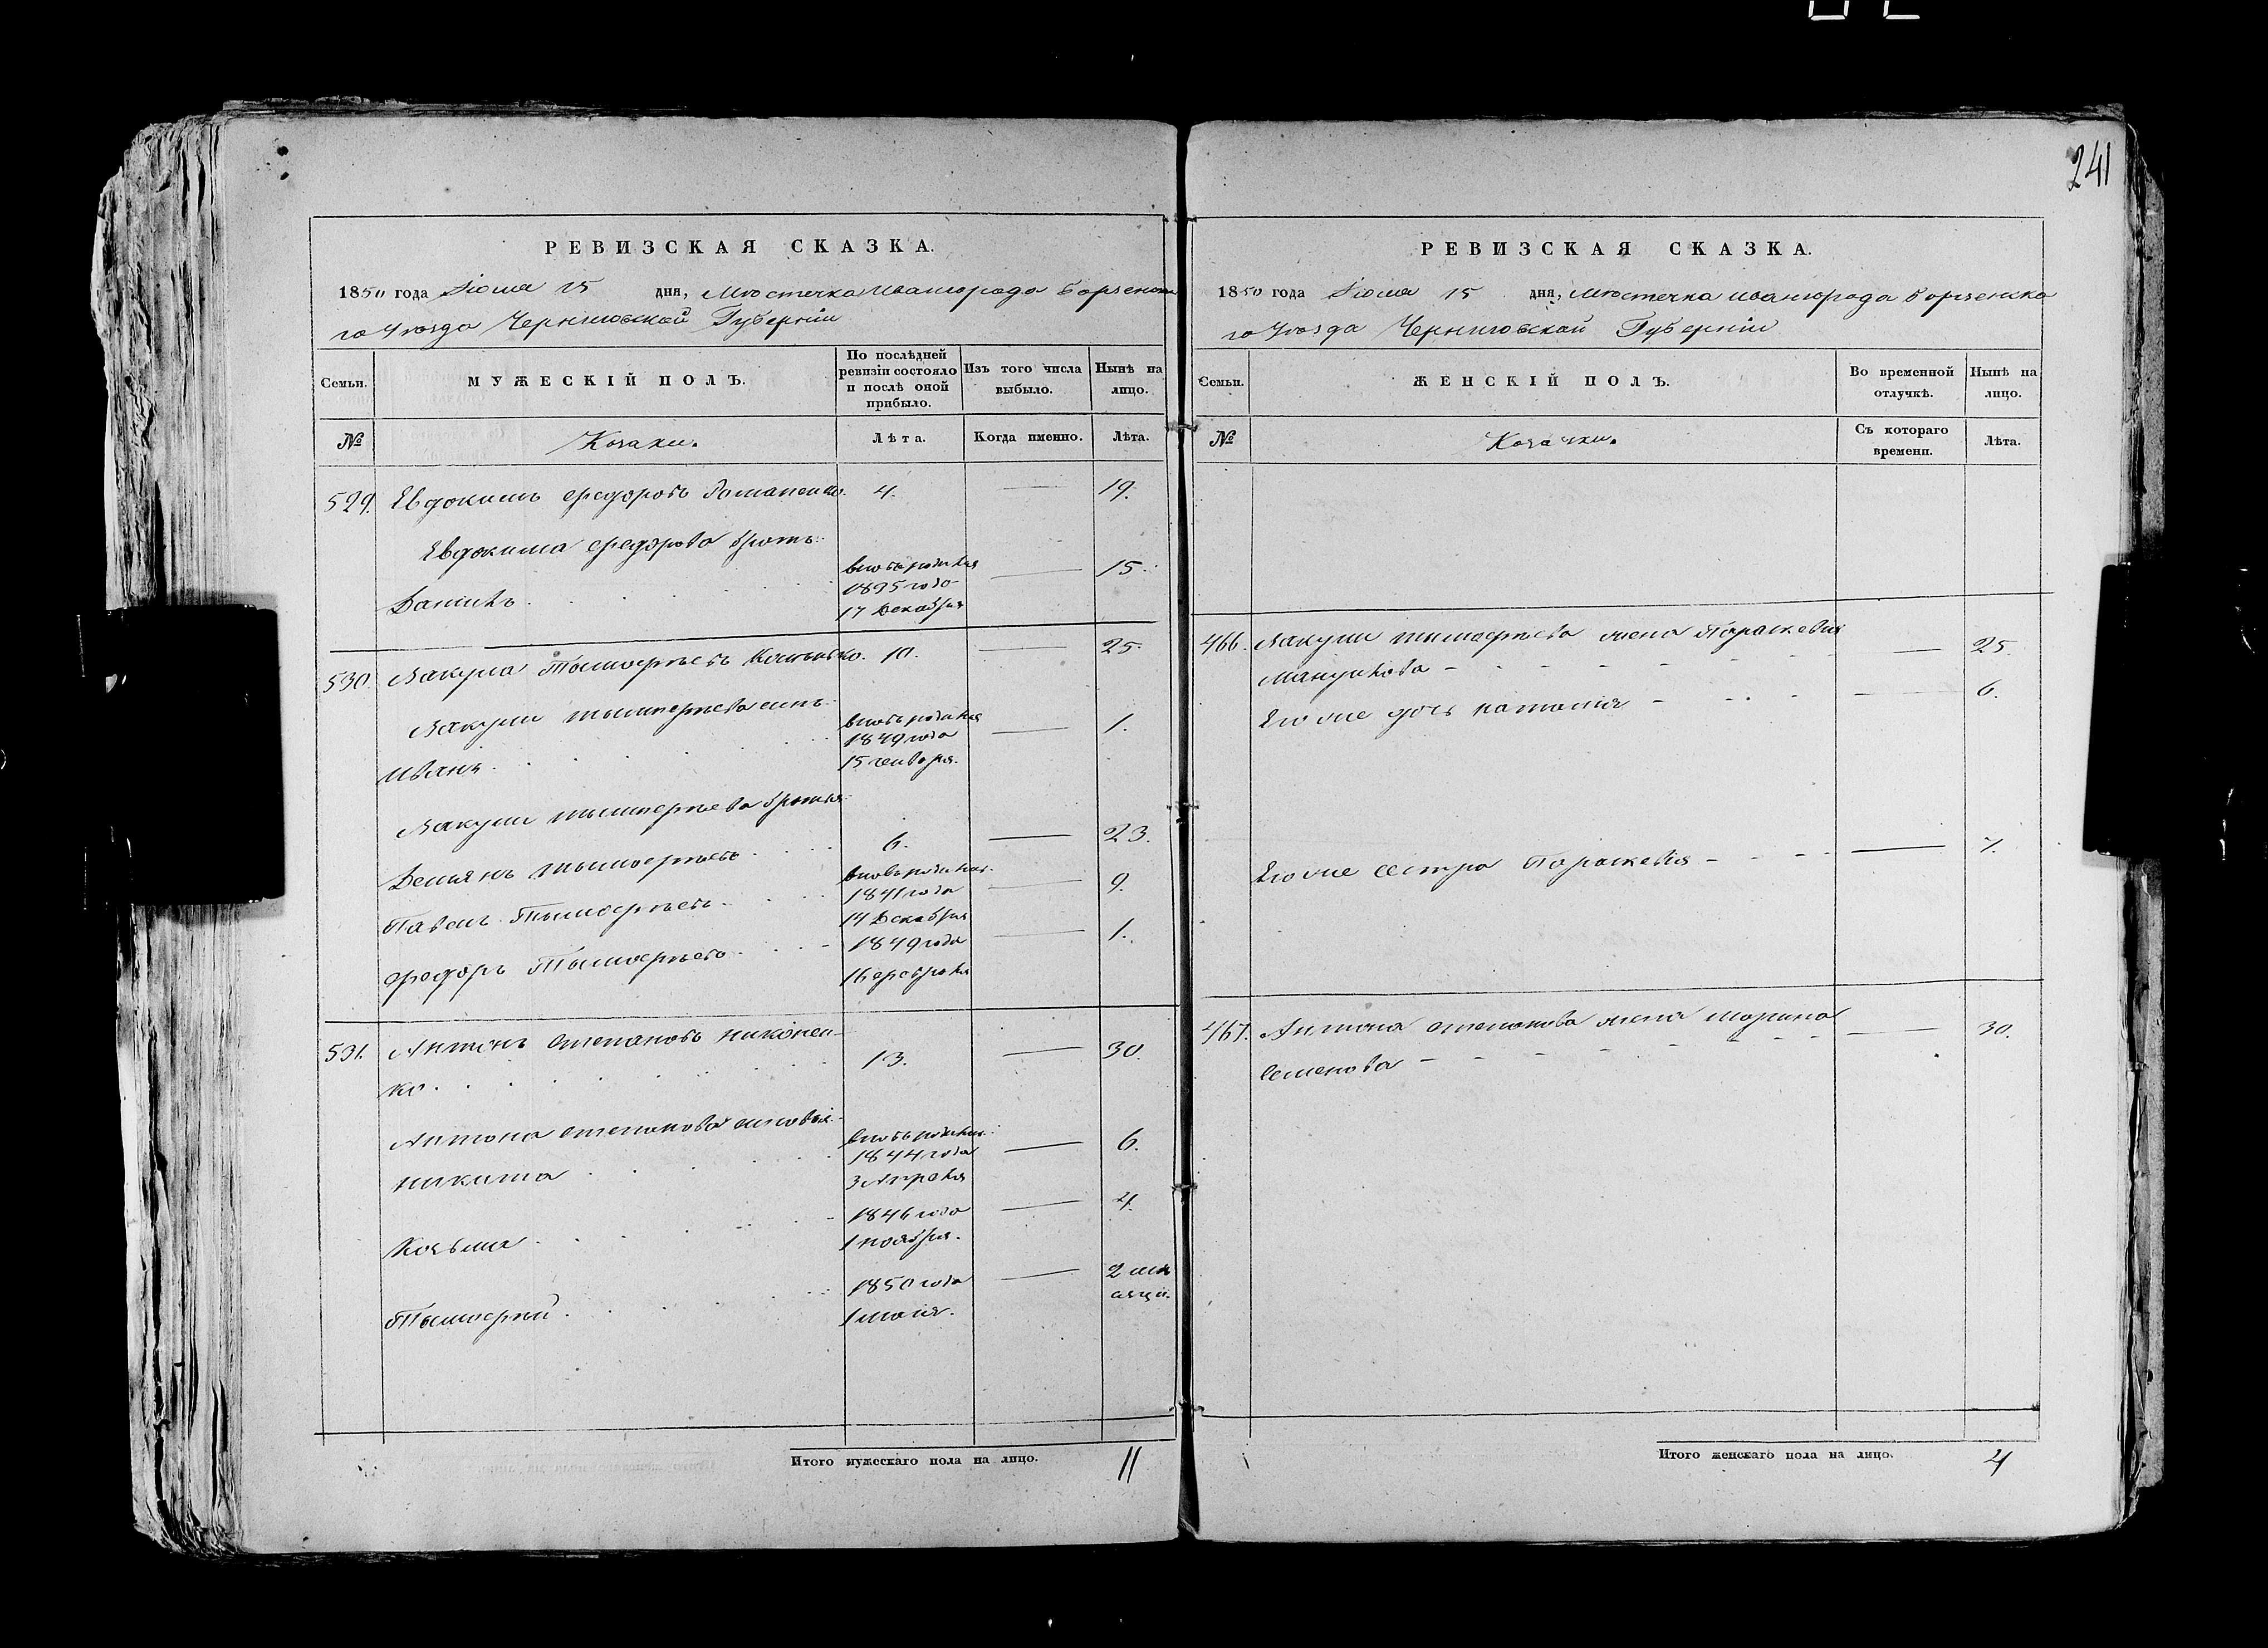 241
РЕВИЗСКАЯ СКАЗКА.
1850 года Іюля 15 дня, Мѣстечка Ивангорода Борзенска
го Уѣзда Черниговской Губерніи
Семьи.
МУЖЕСКІЙ ПОЛЪ.
По послѣдней
ревизіи состояло
и послѣ оной
прибыло.
Изъ того числа
выбыло.
Нынѣ на
лицо.
№
Козаки.
Лѣта.
Когда именно.
Лѣта.
529. Евдокимъ Федоровъ 4. 19.
Евдокима Федорова братъ
Данило 1835 года 17 Декабря 15.
530. Вакула Тимофѣевъ 10. 25.
Вакулы Тимофѣева сынъ
Иванъ 1849 года 15 генваря. 1.
Вакулы Тимофѣева братья
Демьянъ Тимофѣевъ 6. 23.
Павелъ Тимофѣевъ 1841 года 14 Декабря 9.
Федоръ Тимофѣевъ 1849 года 16 февраля 1.
531. Антонъ Степановъ Никонен
ко 13. 30.
Антона Степанова сыновья
Никита 1844 года 3 Апреля 6.
Козьма 1846 года 1 ноября. 4.
Тимофей 1850 года 1 мая. 2 мѣ
сяца.
Итого мужескаго пола на лицо. 11
РЕВИЗСКАЯ СКАЗКА.
1850 года Іюля 15 дня, Мѣстечка Ивангорода Борзенска
го Уѣзда Черниговской Губерніи
Семьи.
ЖЕНСКІЙ ПОЛЪ.
Во временной
отлучкѣ.
Нынѣ на
лицо.
№
Козачки.
Съ котораго
времени.
Лѣта.
466. Вакулы Тимофѣева жена Параскевия
Мануилова 25.
Его же дочь Наталия 6.
Его же сестра Параскевия 7.
467. Антона Степанова жена Марина
Семенова 30.
Итого женскаго пола на лицо. 4